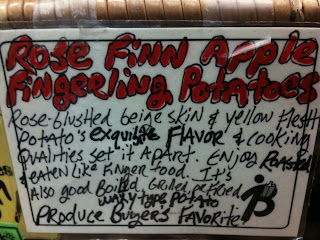 Rose Finn Apple
Fingerling Potatoes
Rose-blushed beige skin & yellow flesh
Potato's exquisite FLAVOR & cooking
Qualities set it apart. Enjoy Roasted
& eaten like finger food. It's
Also good Boiled, Grilled, or fried
waxy type potato
Produce Buyers Favorite!
B